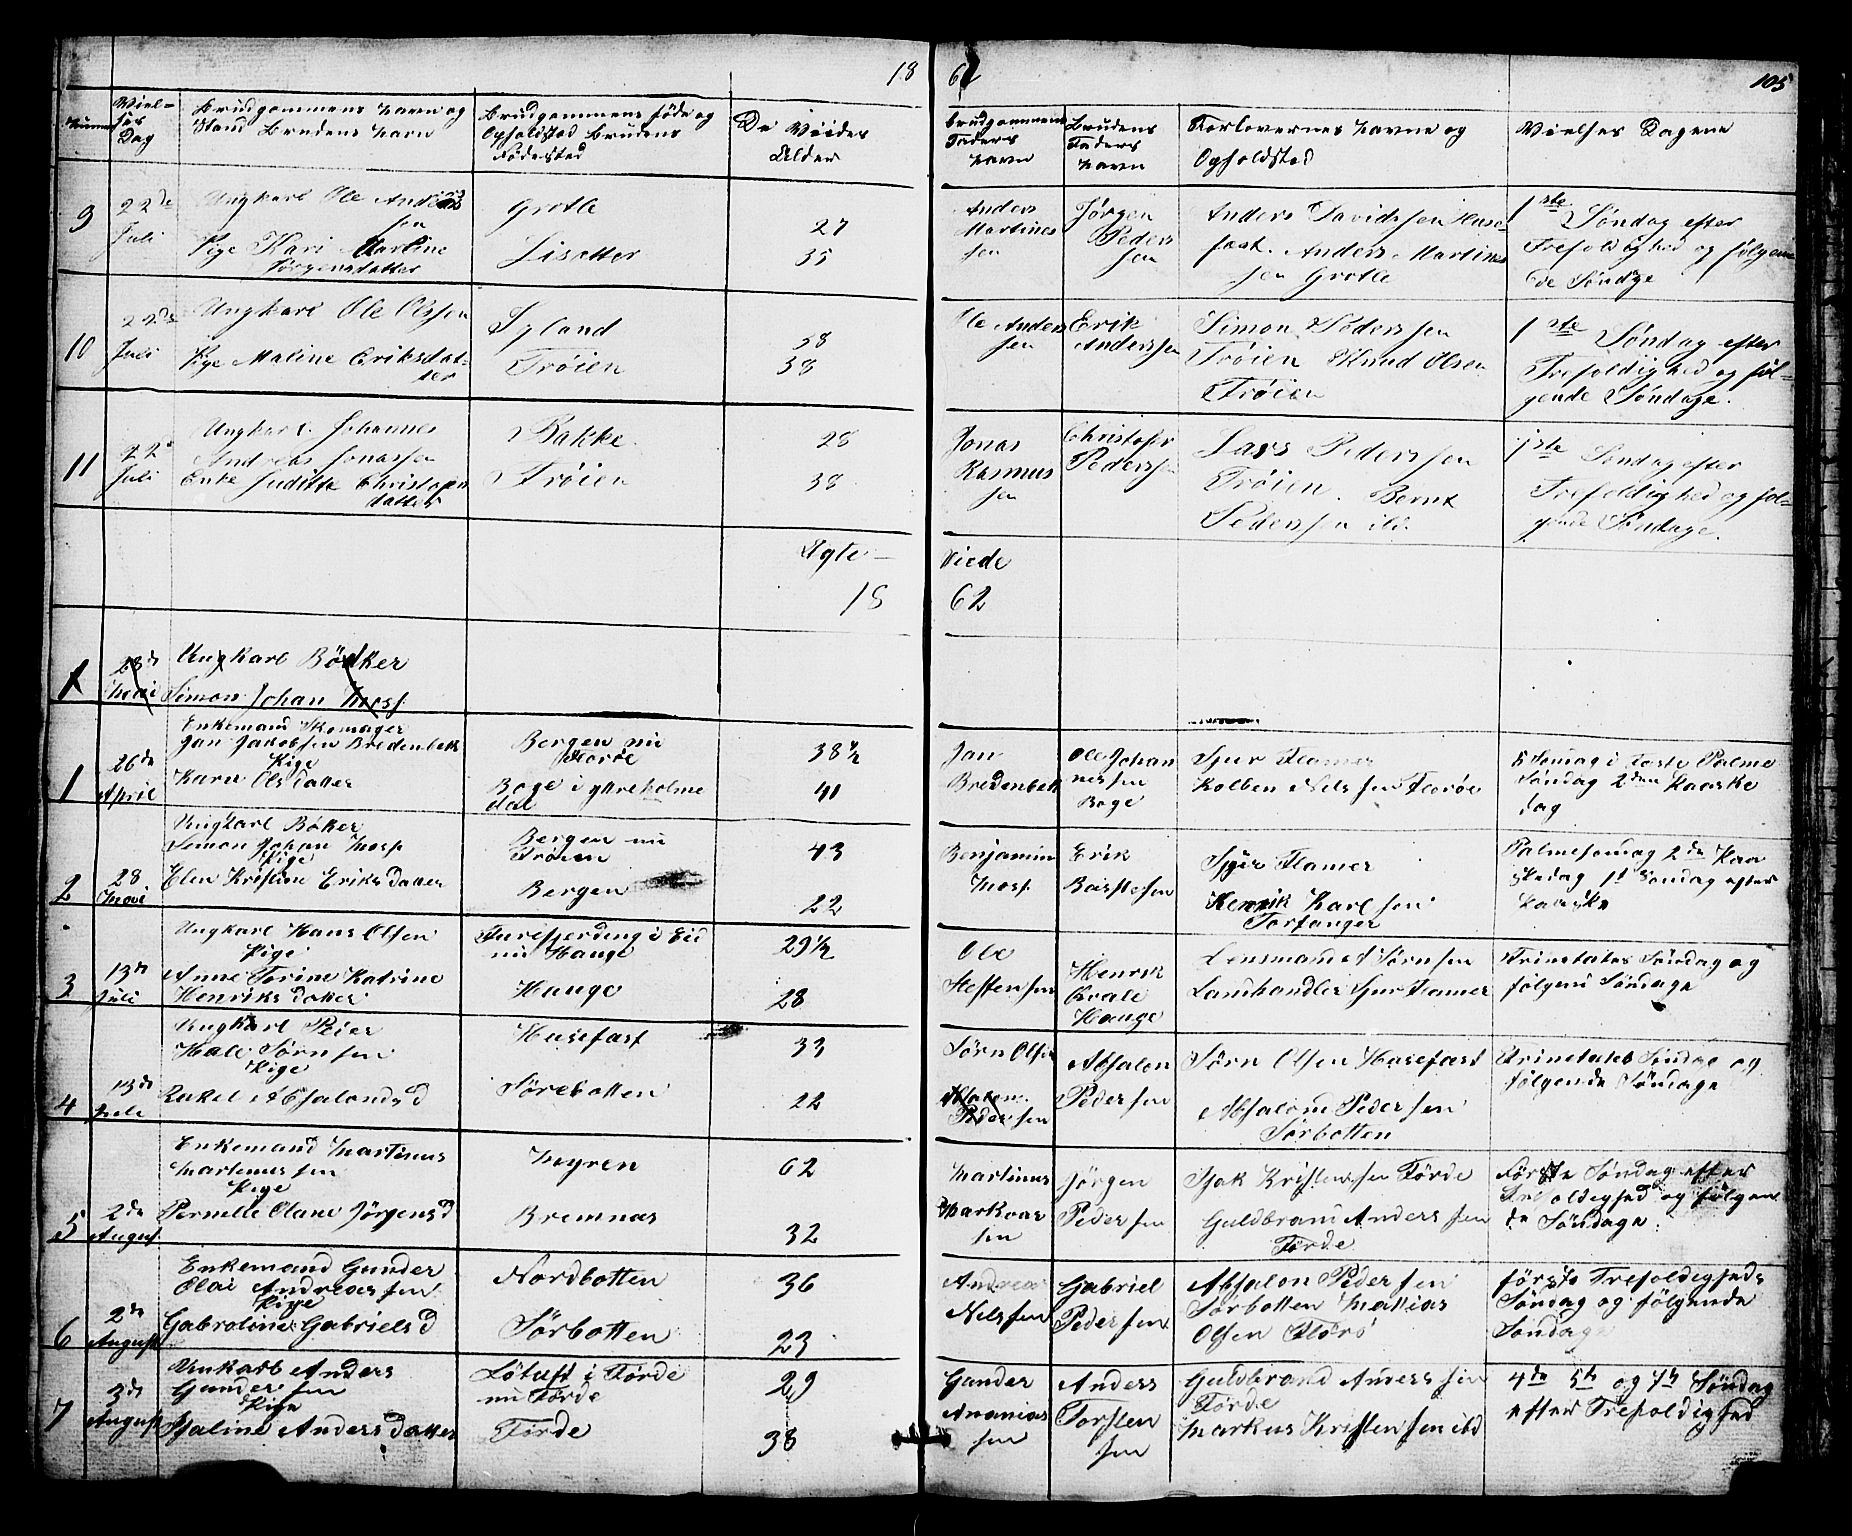 18 61
105
Viel-
ses
Dag
Brudgommens Navn og
Stand Brudens Navn
Brudgommens føde og
Opholdsted Brudens
Fødested
De Viedes
Alder
Brudgommens
Faders
Navn
Brudens
Faders
Navn
Forlovernes Navne og
Opholdsted
Vielses Dagene
9
22de
Juli
Ungkarl Ole Anders
sen
Pige Kari Martine
Jørgensdatter
Grotle
Lisetter
27
35
Anders
Martines
sen
Jørgen
Peders
sen
Anders Davidssen Huse
fast. Anders Martines
sen Grotle
1ste Søndag efter
Trefoldighed og følgen
de Søndge
10
22de
Juli
Ungkarl Ole Olssen
Pige Maline Eriksdat-
ter
Tyland
Trøien
38
38
Ole Anders
sen
Erik
Anderssen
Simon Pederssen
Trøien Knud Olsen
Trøien
1ste Søndag efter
Trefoldighed og føl-
gende Søndage.
11
22d
Juli
Ungkarl Johannes
Andreas Jonassen
Enke Juditte Christophers
datter
Bakke
Trøien
28
38
Jonas
Rasmus
sen
Christofer
Pederssen
Lars Pederssen
Trøien. Bernt
Pederssen ibd.
1ste Søndag efter
Trefoldighed og føl-
gende Søndage.
Ægte- Viede
18 62
1
28d
Mai
Ungkarl Bödker
Simon Johan
1
26de
April
Enkemand Skomager
Jan Jakobsen Bredenbek
Pige
Karen Olsdatter
Bergen nu
Florøe
Boge i yttreholme
dal
38 1/2
41
Jan
Bredenbek
Ole Johan
nessen
Boge
Sjur Flamer
Kolben Nilssen Florøe
5 Sønnag i Faste Palme
Søndag 2den Paaske
dag
2
28
Mai
Ungkarl Böker
Simon Johan
Pige
Elen Kristine Eriksdatter
Bergen nu
Trøien
Bergen
43
22
Benjamin
Erik
Sjur Flamer
Henrik Karlsen
Torfanger
Palmesondag 2de Paa
skedag 1t Søndag efter
Paaske
3
13de
Juli
Ungkarl Hans Olsen
Pige
Anne Torine Katrine
Henriksdatter
i Eid
nu Hauge
Hauge
29 1/2
28
Ole
Steffensen
Henrik
Kvale
Hauge
Lensmand Sørnsen
Landhandler Sjur Flamer
Trinetates Søndag og
følgend Søndage
4
13de
Juli
Ungkarl Peter
Hall Sørnsen
Pige
Rakel Absalonsd
Husefast
Sörebotten
33
22
Sörn Olsen
Absalon
Pedersen
Absalon
Pedersen
Sörn Olsen Husefast
Absalom Pedersen
Sörbotten
Trinetates Søndag og
følgende Søndage
5
2de
August
Enkemand Martinus
Martinussen
Pige
Pernelle Olane Jörgensd
Myren
Bremnes
62
32
Martinus
Markvar
sen
Jörgen
Pedersen
Isak Kristensen Förde
Guldbrand Anderssen
Förde
Förste Søndag efter
Trefoldeghed og følgen
de Søndage.
6
2de
August
Enkemand Gunder
Olai Andreassen
Pige
Gabroline Gabrielsd
Nordbotten
Sörbotten
36
23
Andreas
Nelssen
Gabriel
Pedersen
Absalon Pedersen
Sörbotten Mattias
Olsen Florø
förste Trefoldigheds
Søndag og følgende
Søndage
7
3de
August
Unkarl Anders
Gundersen
Pige
Maline Andersdatter
Løtuft i Førde
nu Førde
Förde
29
38
Gunder
Ananias
sen
Anders
Torsten
sen
Guldbrand Anderssen
Förde
Markus Kristensen ibd
4de 5te og 7de Søndag
efter Trefoldighed